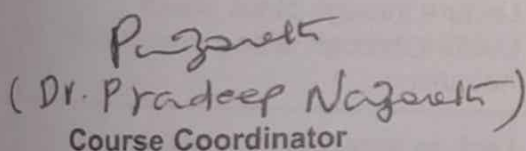 PNazareth
(Dr. Pradeep Nazareth)
Course Coordinator